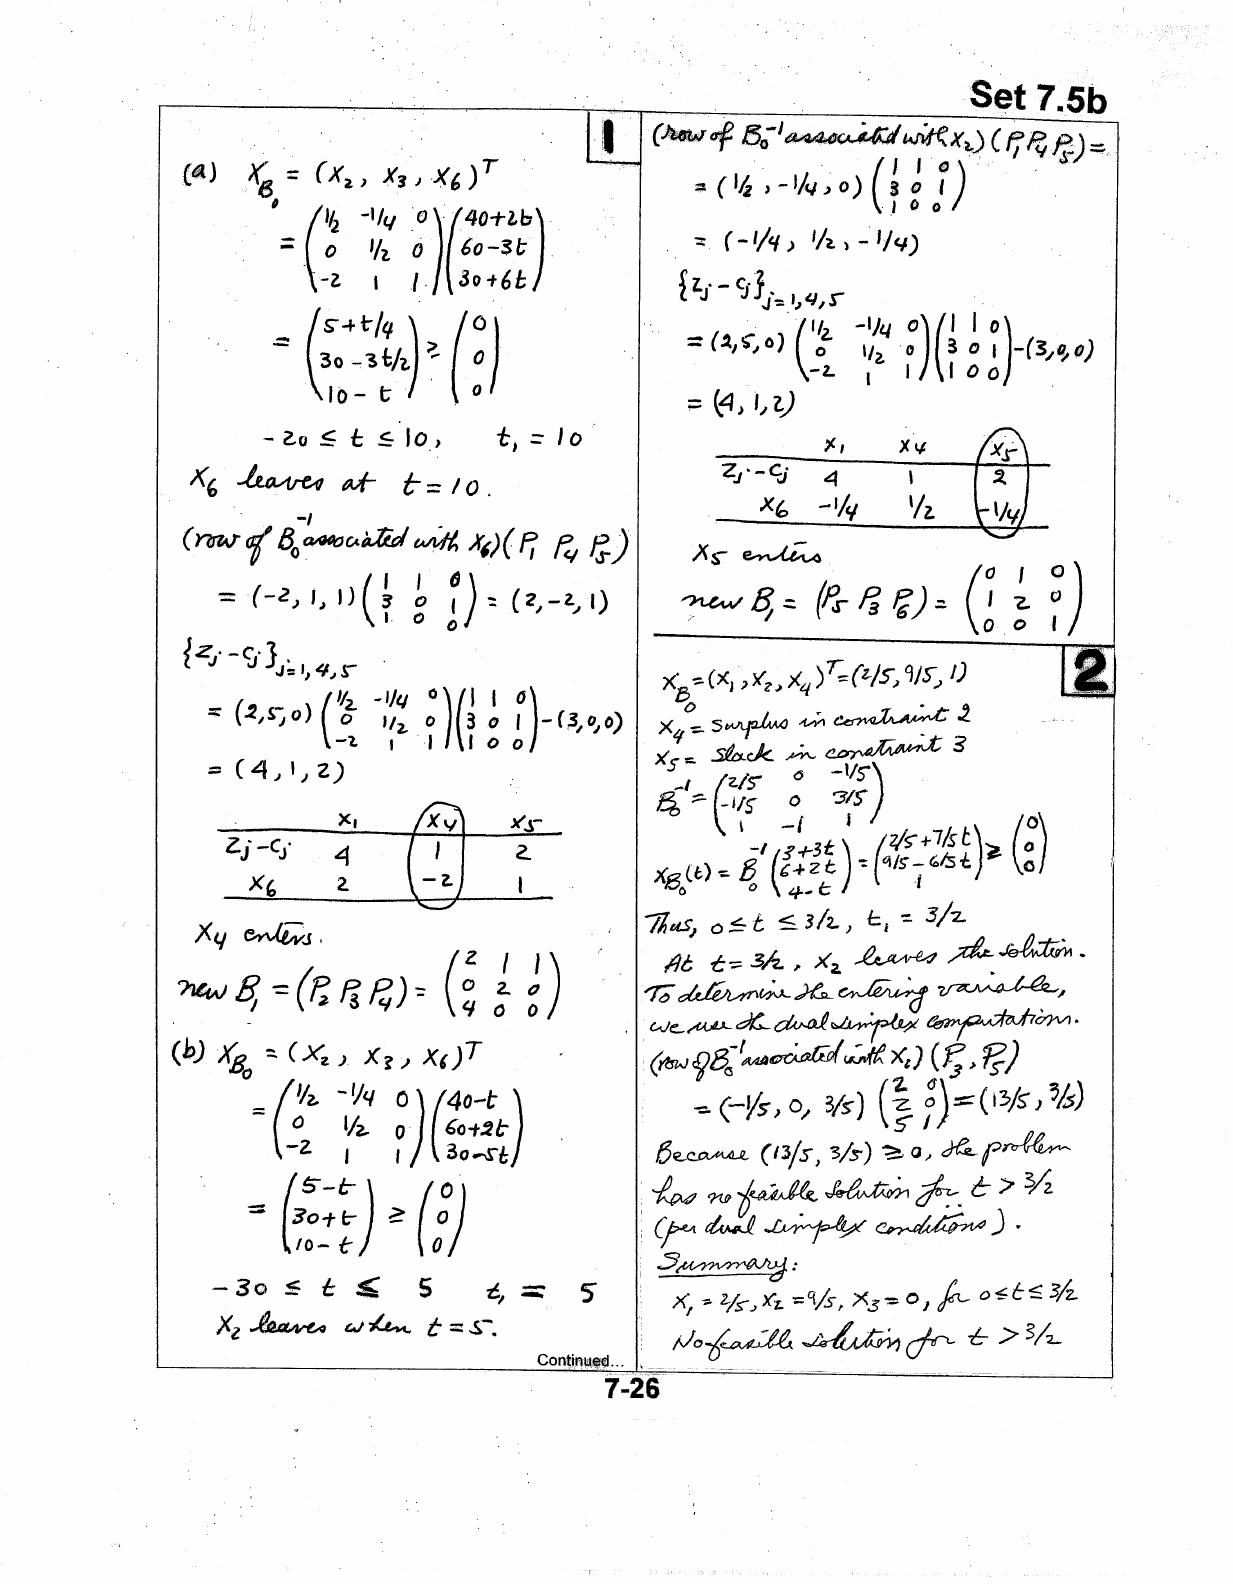 Set 7.5b
1
(a) X_B0 = (X2, X3, X6)^T
= (1/2 -1/4 0; 0 1/2 0; -2 1 1)(40+2t; 60-3t; 30+6t)
= (5+t/4; 30-3t/2; 10-t) ≥ (0; 0; 0)
-20 ≤ t ≤ 10, t1 = 10
X6 leaves at t = 10.
(row of B0^-1 associated with X6)(P1 P4 P5)
= (-2, 1, 1)(1 1 0; 3 0 1; 1 0 0) = (2, -2, 1)
{Zj - Cj}j=1,4,5
= (2,5,0)(1/2 -1/4 0; 0 1/2 0; -2 1 1)(1 1 0; 3 0 1; 1 0 0) - (3,0,0)
= (4, 1, 2)
X1 X4 X5
Zj-Cj 4 1 2
X6 2 -2 1
X4 enters.
new B1 = (P2 P3 P4) = (2 1 1; 0 2 0; 4 0 0)
(b) X_B0 = (X2, X3, X6)^T
= (1/2 -1/4 0; 0 1/2 0; -2 1 1)(40-t; 60+2t; 30-5t)
= (5-t; 30+t; 10-t) ≥ (0; 0; 0)
-30 ≤ t ≤ 5 t1 = 5
X2 leaves when t = 5.
Continued...
(row of B0^-1 associated with X2)(P1 P4 P5) =
= (1/2, -1/4, 0)(1 1 0; 3 0 1; 1 0 0)
= (-1/4, 1/2, -1/4)
{Zj - Cj}j=1,4,5
= (2,5,0)(1/2 -1/4 0; 0 1/2 0; -2 1 1)(1 1 0; 3 0 1; 1 0 0) - (3,0,0)
= (4, 1, 2)
X1 X4 X5
Zj-Cj 4 1 2
X6 -1/4 1/2 -1/4
X5 enters
new B1 = (P5 P3 P6) = (0 1 0; 1 2 0; 0 0 1)
2
X_B0 = (X1, X2, X4)^T = (2/5, 9/5, 1)
X4 = Surplus in constraint 2
X5 = Slack in constraint 3
B0^-1 = (2/5 0 -1/5; -1/5 0 3/5; 1 -1 1)
X_B0(t) = B0^-1 (3+3t; 6+2t; 4-t) = (2/5+7/5t; 9/5-6/5t; 1) ≥ (0; 0; 0)
Thus, 0 ≤ t ≤ 3/2, t1 = 3/2
At t = 3/2, X2 leaves the solution.
To determine the entering variable,
we use the dual simplex computations.
(row of B0^-1 associated with X2) (P3, P5)
= (-1/5, 0, 3/5)(2 0; 2 0; 5 1) = (13/5, 3/5)
Because (13/5, 3/5) ≥ 0, the problem
has no feasible solution for t > 3/2
(per dual simplex conditions).
Summary:
X1 = 2/5, X2 = 9/5, X3 = 0, for 0 ≤ t ≤ 3/2
No feasible solution for t > 3/2
7-26